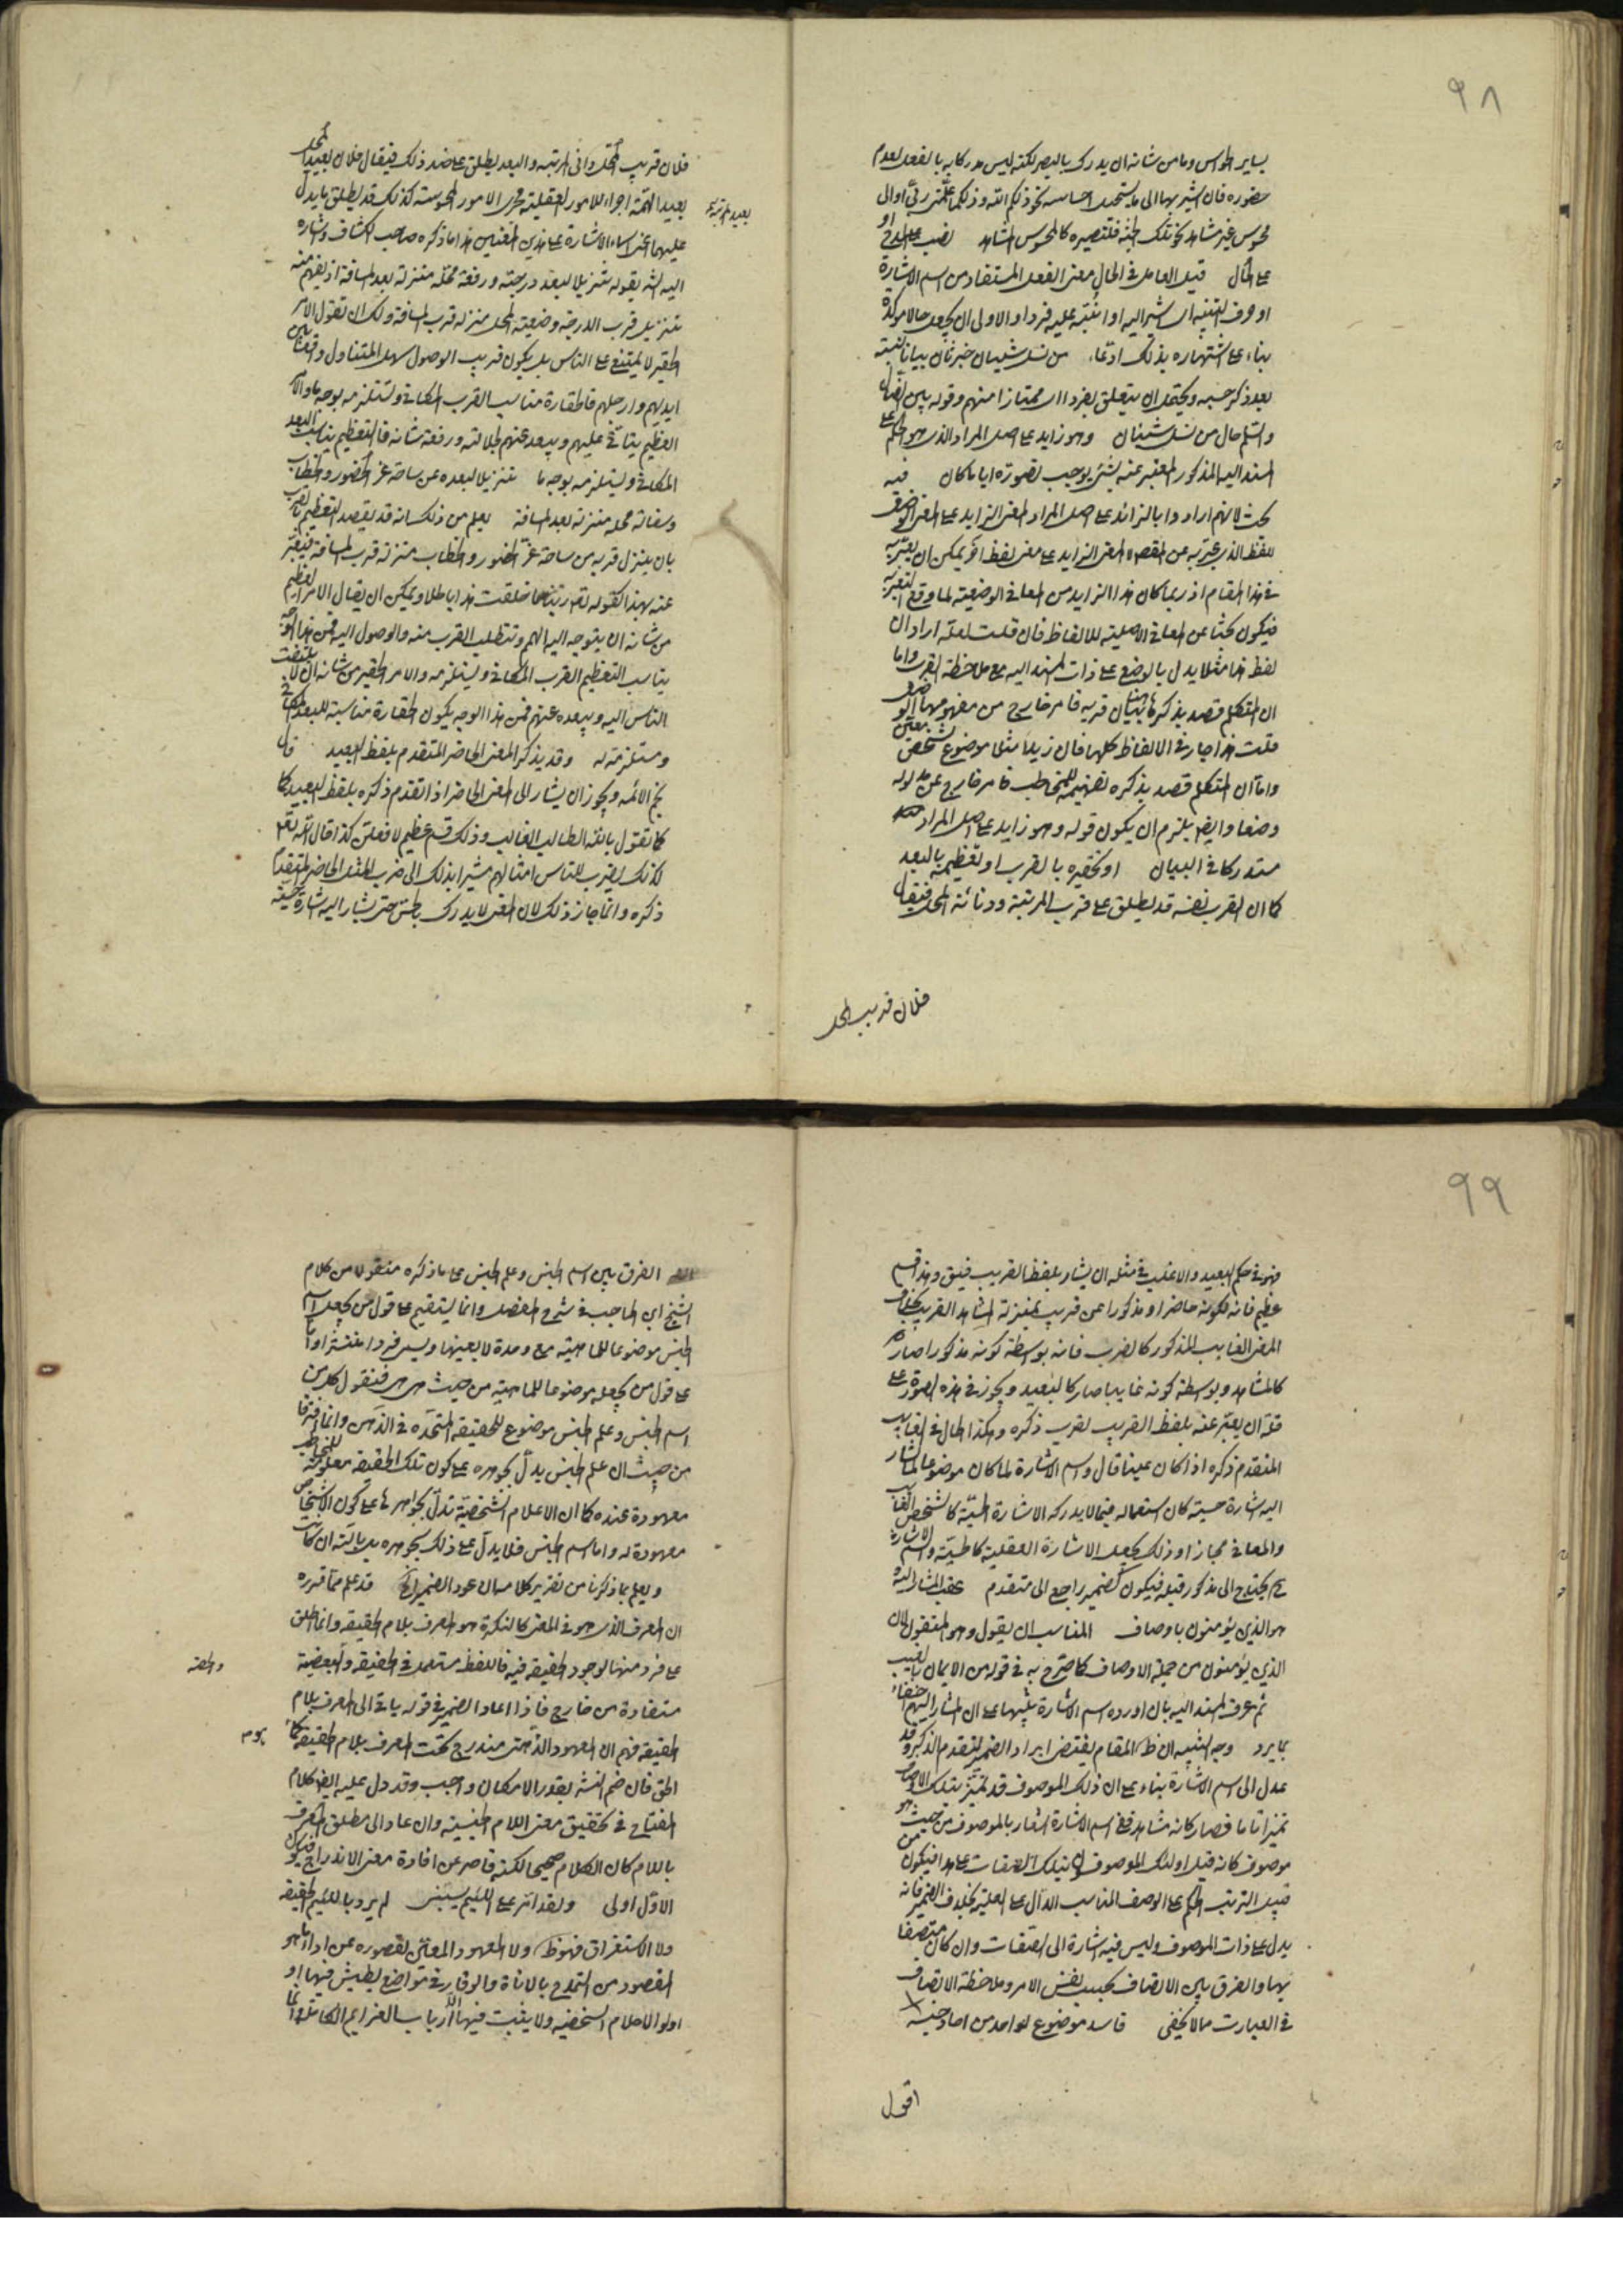 ٩٨
بساير الحواس وما من شانه ان يدرك بالبصر لكنه ليس مدركا به بالفعل لعدم
حضوره فان اشير بها الى ما يستحيل احساسه نحو ذلكم الله وذلكما مما علمني ربي او الى
محسوس غير مشاهد نحو تلك الجنة فلتصييره كالمحسوس المشاهد نصب على المدح او
على الحال قيل العامل في الحال معنى الفعل المستفاد من اسم الاشارة
او حرف التنبيه اى اشير اليه او انبه عليه فردا والاولى ان يجعل حالا موكدة
بناء على اشتهاره بذلك ادعاء من نسل شيبان خبر ثان بيانا لنسبه
بعد ذكر حسبه ويحتمل ان يتعلق بفردا اى ممتازا منهم وقوله بين الضال
والسلم حال من نسل شيبان وهو زايد على اصل المراد الذى هو الحكم على
المسند اليه المذكور المعبر عنه بشئ يوجب تصوره ايا ما كان فيه
بحث لانهم ارادوا بالزائد على اصل المراد المعنى الزايد على المعنى الوضعى
للفظ الذى عبر به عن المقصد لا المعنى الزايد على معنى لفظ اخر يمكن ان يعبر به
في هذا المقام اذ ربما كان هذا الزايد من المعانى الوضعية لما وقع التعبير به
فيكون بحثا عن المعانى الاصلية للالفاظ فان قلت لعله اراد ان
لفظ هذا مثلا يدل بالوضع على ذات المسند اليه مع ملاحظة القرب واما
ان المتكلم قصد بذكرها هنا بيان قربه فامر خارج من مفهومها الوضعى
قلت هذا جار في الالفاظ كلها فان زيدا مثلا موضوع لشخص معين
واما ان المتكلم قصد بذكره تفهيمه للمخاطب فامر خارج عن مدلوله
وضعا وايضا يلزم ان يكون قوله وهو زايد على اصل المراد
مستدركا في البيان او تحقيره بالقرب او تعظيمه بالبعد
كما ان القرب نفسه قد يطلق على قرب المرتبة ودنائة المحل فيقال
فلان قريب المحل
فلان قريب المحل دانى المرتبه والبعد يطلق على ضد ذلك فيقال فلان بعيد المحل
بعيد الهمة اجراء للامور العقلية مجرى الامور المحسوسة كذلك قد يطلق ما يدل
بعيد المرتبه
عليهما اعنى اسماء الاشارة على هذين المعنيين هذا ما ذكره صاحب الكشاف واشار
اليه الش بقوله تنزيلا لبعد درجته ورفعة محله منزلة بعد المسافة اذ يفهم منه
تنزيل قرب الدرجة وضعة المحل منزلة قرب المسافة ولك ان تقول الامر
الحقير لا يمتنع على الناس بل يكون قريب الوصول سهل المتناول واقعا بين
ايديهم وارجلهم فالحقارة مناسب القرب المكانى وتستلزمه بوجه ما والامر
العظيم يتابى عليهم ويبعد عنهم لجلالته ورفعة شانه فالتعظيم يناسب البعد
المكانى ويستلزمه بوجه ما تنزيلا لبعده عن ساحة عز الحضور والخطاب
وسفالة محله منزلة بعد المسافة يعلم من ذلك انه قد يقصد التعظيم بالقرب
بان ينزل قربه من ساحة عز الحضور والخطاب منزلة قرب المسافة فيعبر
عنه بهذا كقوله تعم ربنا ما خلقت هذا باطلا ويمكن ان يقال الامر العظيم
من شانه ان يتوجه اليه الهمم وتتطلب القرب منه والوصول اليه فمن هذا الوجه
يناسب التعظيم القرب المكانى ويستلزمه والامر الحقير من شانه ان لا يلتفت
الناس اليه ويبعده عنهم فمن هذا الوجه يكون الحقارة مناسبة للبعد المكانى
ومستلزمة له وقد يذكر المعنى الحاضر المتقدم بلفظ البعيد قال
نجم الائمه ويجوز ان يشار الى المعنى الحاضر اذا تقدم ذكره بلفظ البعيد كما
كما تقول بالله الطالب الغالب وذلك قسم عظيم لافعلن كذا قال الله تعم
كذلك يضرب الله للناس امثالهم مشيرا بذلك الى ضرب المثل الحاضر المتقدم
ذكره وانما جاز ذلك لان المعنى لا يدرك بالحس حتى يشار اليه اشارة حسية
٩٩
فهو في حكم البعيد والاغلب في مثله ان يشار بلفظ القريب فيق وهذا قسم
عظيم فانه لكونه حاضرا ومذكورا عن قريب بمنزلة المشاهد القريب بخلاف
المعنى الغايب المذكور كالضرب فانه بواسطة كونه مذكورا صار
كالمشاهد وبواسطة كونه غايبا صار كالبعيد ويجوز في هذه الصورة على
قلة ان يعبر عنه بلفظ القريب لقرب ذكره وهكذا الحال في الغايب
المتقدم ذكره اذا كان عينا قال واسم الاشارة لما كان موضوعا للمشار
اليه اشارة حسية كان استعماله فيما لا يدركه الاشارة الحسية كالشخص الغايب
والمعانى مجازا وذلك بجعل الاشارة العقلية كالحسية واسم الاشارة
ح يحتاج الى مذكور قبله فيكون كضمير راجع الى متقدم عقب المشار اليه
هو الذين يؤمنون باوصاف المناسب ان يقول وهو المتقون لان
الذين يؤمنون من جملة الاوصاف كما صرح به في قوله من الايمان بالغيب
ثم عرف المسند اليه بان اورده اسم الاشارة تنبيها على ان المشار اليهم احقاء
بما يرد وجه التنبيه ان ظ المقام يقتضى ايراد الضمير لتقدم الذكر وقد
عدل الى اسم الاشارة بناء على ان ذلك الموصوف قد تميز بتلك الاوصاف
تميزا تاما فصار كانه مشاهد ففى اسم الاشارة اشعار بالموصوف من حيث هو
موصوف كانه قيل اولئك الموصوفون بتلك الصفات على هدى فيكون من
قبيل ترتب الحكم على الوصف المناسب الدال على العلية بخلاف الضمير فانه
يدل على ذات الموصوف وليس فيه اشارة الى الصفات وان كان متصفا
بها والفرق بين الاتصاف بحسب نفس الامر وملاحظة الاتصاف
في العبارت مما لا يخفى فاسد موضوع لواحد من احاد جنسه
اقول
الفرق بين اسم الجنس وعلم الجنس على ما ذكره منقول من كلام
الشيخ ابن الحاجب في شرح المفصل وانما يستقيم على قول من يجعل اسم
الجنس موضوعا للماهية مع وحدة لا بعينها ويسمى فردا منتشرا واما
على قول من يجعله موضوعا للماهية من حيث هى هى فنقول كل من
اسم الجنس وعلم الجنس موضوع للحقيقة المتحدة في الذهن وانما افترقا
من حيث ان علم الجنس يدل بجوهره على كون تلك الحقيقة معلومة للمخاطب
معهودة عنده كما ان الاعلام الشخصية تدل بجواهرها على كون الاشخاص
معهودة له واما اسم الجنس فلا يدل على ذلك بجوهره بل بالته ان كانت
ويعلم بما ذكرنا من تقرير كلامه ان عود الضمير الخ قد علم مما قرره
ان المعرف الذى هو في المعنى كالنكرة هو المعرف بلام الحقيقة وانما اطلق
على فرد منها لوجود الحقيقة فيه فاللفظ مستعمل في الحقيقة والبعضية
والحصة
مستفادة من خارج فاذا اعاد الضمير في قوله ياتى الى المعرف بلام
الحقيقة فهم ان المعهود الذهنى مندرج تحت المعرف بلام الحقيقة كما
الحق فان ضم النشر بقدر الامكان واجب وقد دل عليه ايضا كلام
المفتاح في تحقيق معنى اللام الجنسية وان عاد الى مطلق المعرف
باللام كان الكلام صحيحا لكنه قاصر عن افادة معنى الاندراج فيكون
الاول اولى ولقد امر على اللئيم يسبنى لم يرد باللئيم الحقيقة
ولا الاستغراق فهو ظ ولا المعهود المعين لقصوره عن اداء ما هو
المقصود من التمدح بالاناة والوقار في مواضع يطيش فيها
اولو الاحلام السخيفة ولا يثبت فيها الا ارباب العزايم الكاملة وانما